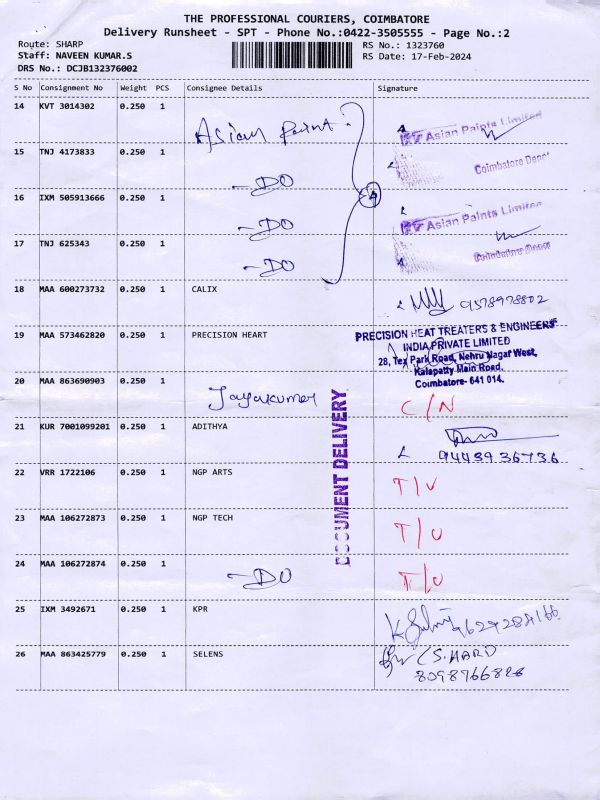 THE PROFESSIONAL COURIERS, COIMBATORE
Delivery Runsheet - SPT - Phone No.:0422-3505555 - Page No.:2
Route: SHARP
RS No.: 1323760
Staff: NAVEEN KUMAR.S
RS Date: 17-Feb-2024
DRS No.: DCJB132376002
S No Consignment No Weight PCS Consignee Details Signature
14 KVT 3014302 0.250 1 Asian Paint Asian Paints Limited
15 TNJ 4173833 0.250 1 -DO Coimbatore Depot
16 IXM 505913666 0.250 1 -DO Asian Paints Limited
17 TNJ 625343 0.250 1 -DO Coimbatore Depot
4
18 MAA 600273732 0.250 1 CALIX 9578978802
19 MAA 573462820 0.250 1 PRECISION HEART
PRECISION HEAT TREATERS & ENGINEERS
INDIA PRIVATE LIMITED
28, Tex Park Road, Nehru Nagar West,
Kalapatty Main Road,
Coimbatore- 641 014.
20 MAA 863690903 0.250 1 Jayakumer C/N
21 KUR 7001099201 0.250 1 ADITHYA 9443936736
DOCUMENT DELIVERY
22 VRR 1722106 0.250 1 NGP ARTS T/U
23 MAA 106272873 0.250 1 NGP TECH T/U
24 MAA 106272874 0.250 1 -DO T/U
25 IXM 3492671 0.250 1 KPR
26 MAA 863425779 0.250 1 SELENS (S.HARD
8098766826